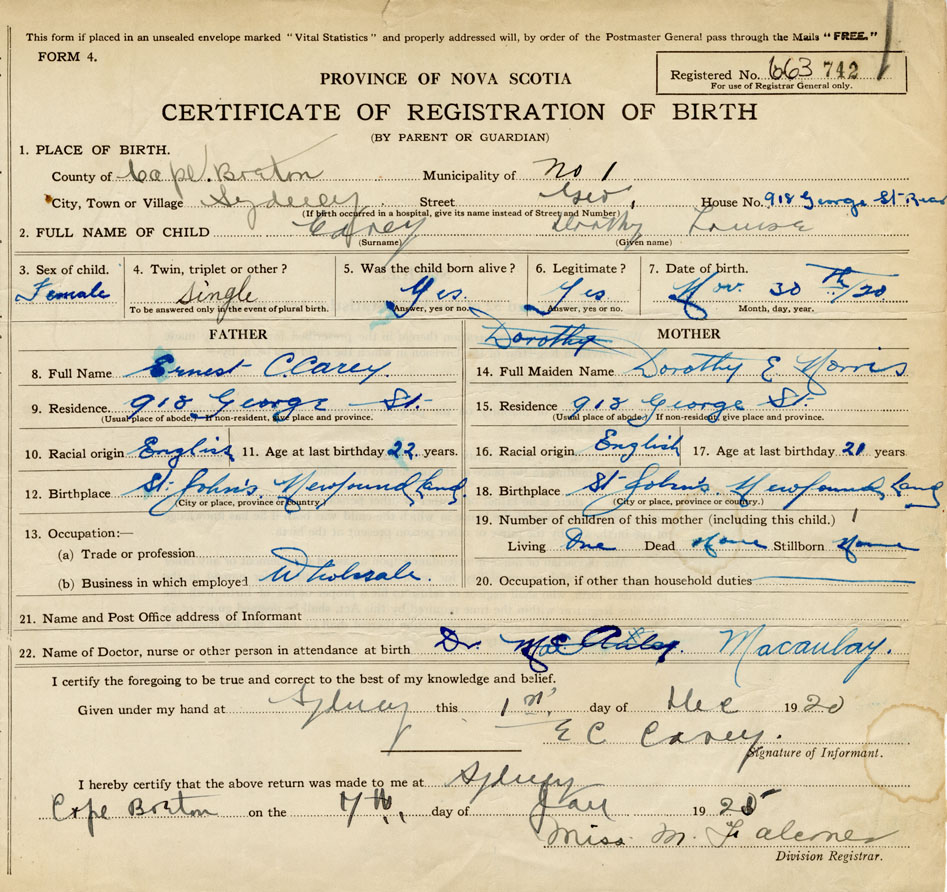 This form if placed in an unsealed envelope marked "Vital Statistics" and properly addressed will, by order of the Postmaster General pass through the Mails "FREE."
FORM 4.
Registered No. 663 742
For use of Registrar General only.
PROVINCE OF NOVA SCOTIA
CERTIFICATE OF REGISTRATION OF BIRTH
(BY PARENT OR GUARDIAN)
1. PLACE OF BIRTH.
County of Cape Braton Municipality of No 1
City, Town or Village Sydney Street Geo House No. 918 George St. Rear
(If birth occurred in a hospital, give its name instead of Street and Number)
2. FULL NAME OF CHILD Carey Dorothy Louise
(Surname) (Given name)
3. Sex of child. 4. Twin, triplet or other? 5. Was the child born alive? 6. Legitimate? 7. Date of birth.
Female Single Yes. Yes Nov. 30th/20
To be answered only in the event of plural birth. Answer, yes or no. Answer, yes or no. Month, day, year.
FATHER
8. Full Name Ernest C. Carey.
9. Residence. 918 George St.
(Usual place of abode.) If non-resident, give place and province.
10. Racial origin English 11. Age at last birthday 22 years.
12. Birthplace St. John's. Newfoundland.
(City or place, province or country.)
13. Occupation:—
(a) Trade or profession
(b) Business in which employed Wholesale.
MOTHER
Dorothy
14. Full Maiden Name Dorothy E Norris
15. Residence 918 George St.
(Usual place of abode.) If non-resident, give place and province.
16. Racial origin English 17. Age at last birthday 21 years
18. Birthplace St John's. Newfoundland
(City or place, province or country.)
19. Number of children of this mother (including this child.) 1
Living One Dead None Stillborn None
20. Occupation, if other than household duties
21. Name and Post Office address of Informant
22. Name of Doctor, nurse or other person in attendance at birth Dr. Macaulay.
I certify the foregoing to be true and correct to the best of my knowledge and belief.
Given under my hand at Sydney this 1st day of Dec 1920
E C Carey.
Signature of Informant.
I hereby certify that the above return was made to me at Sydney
Cape Braton on the 7th day of Jan 1925
Miss M. Falconer
Division Registrar.